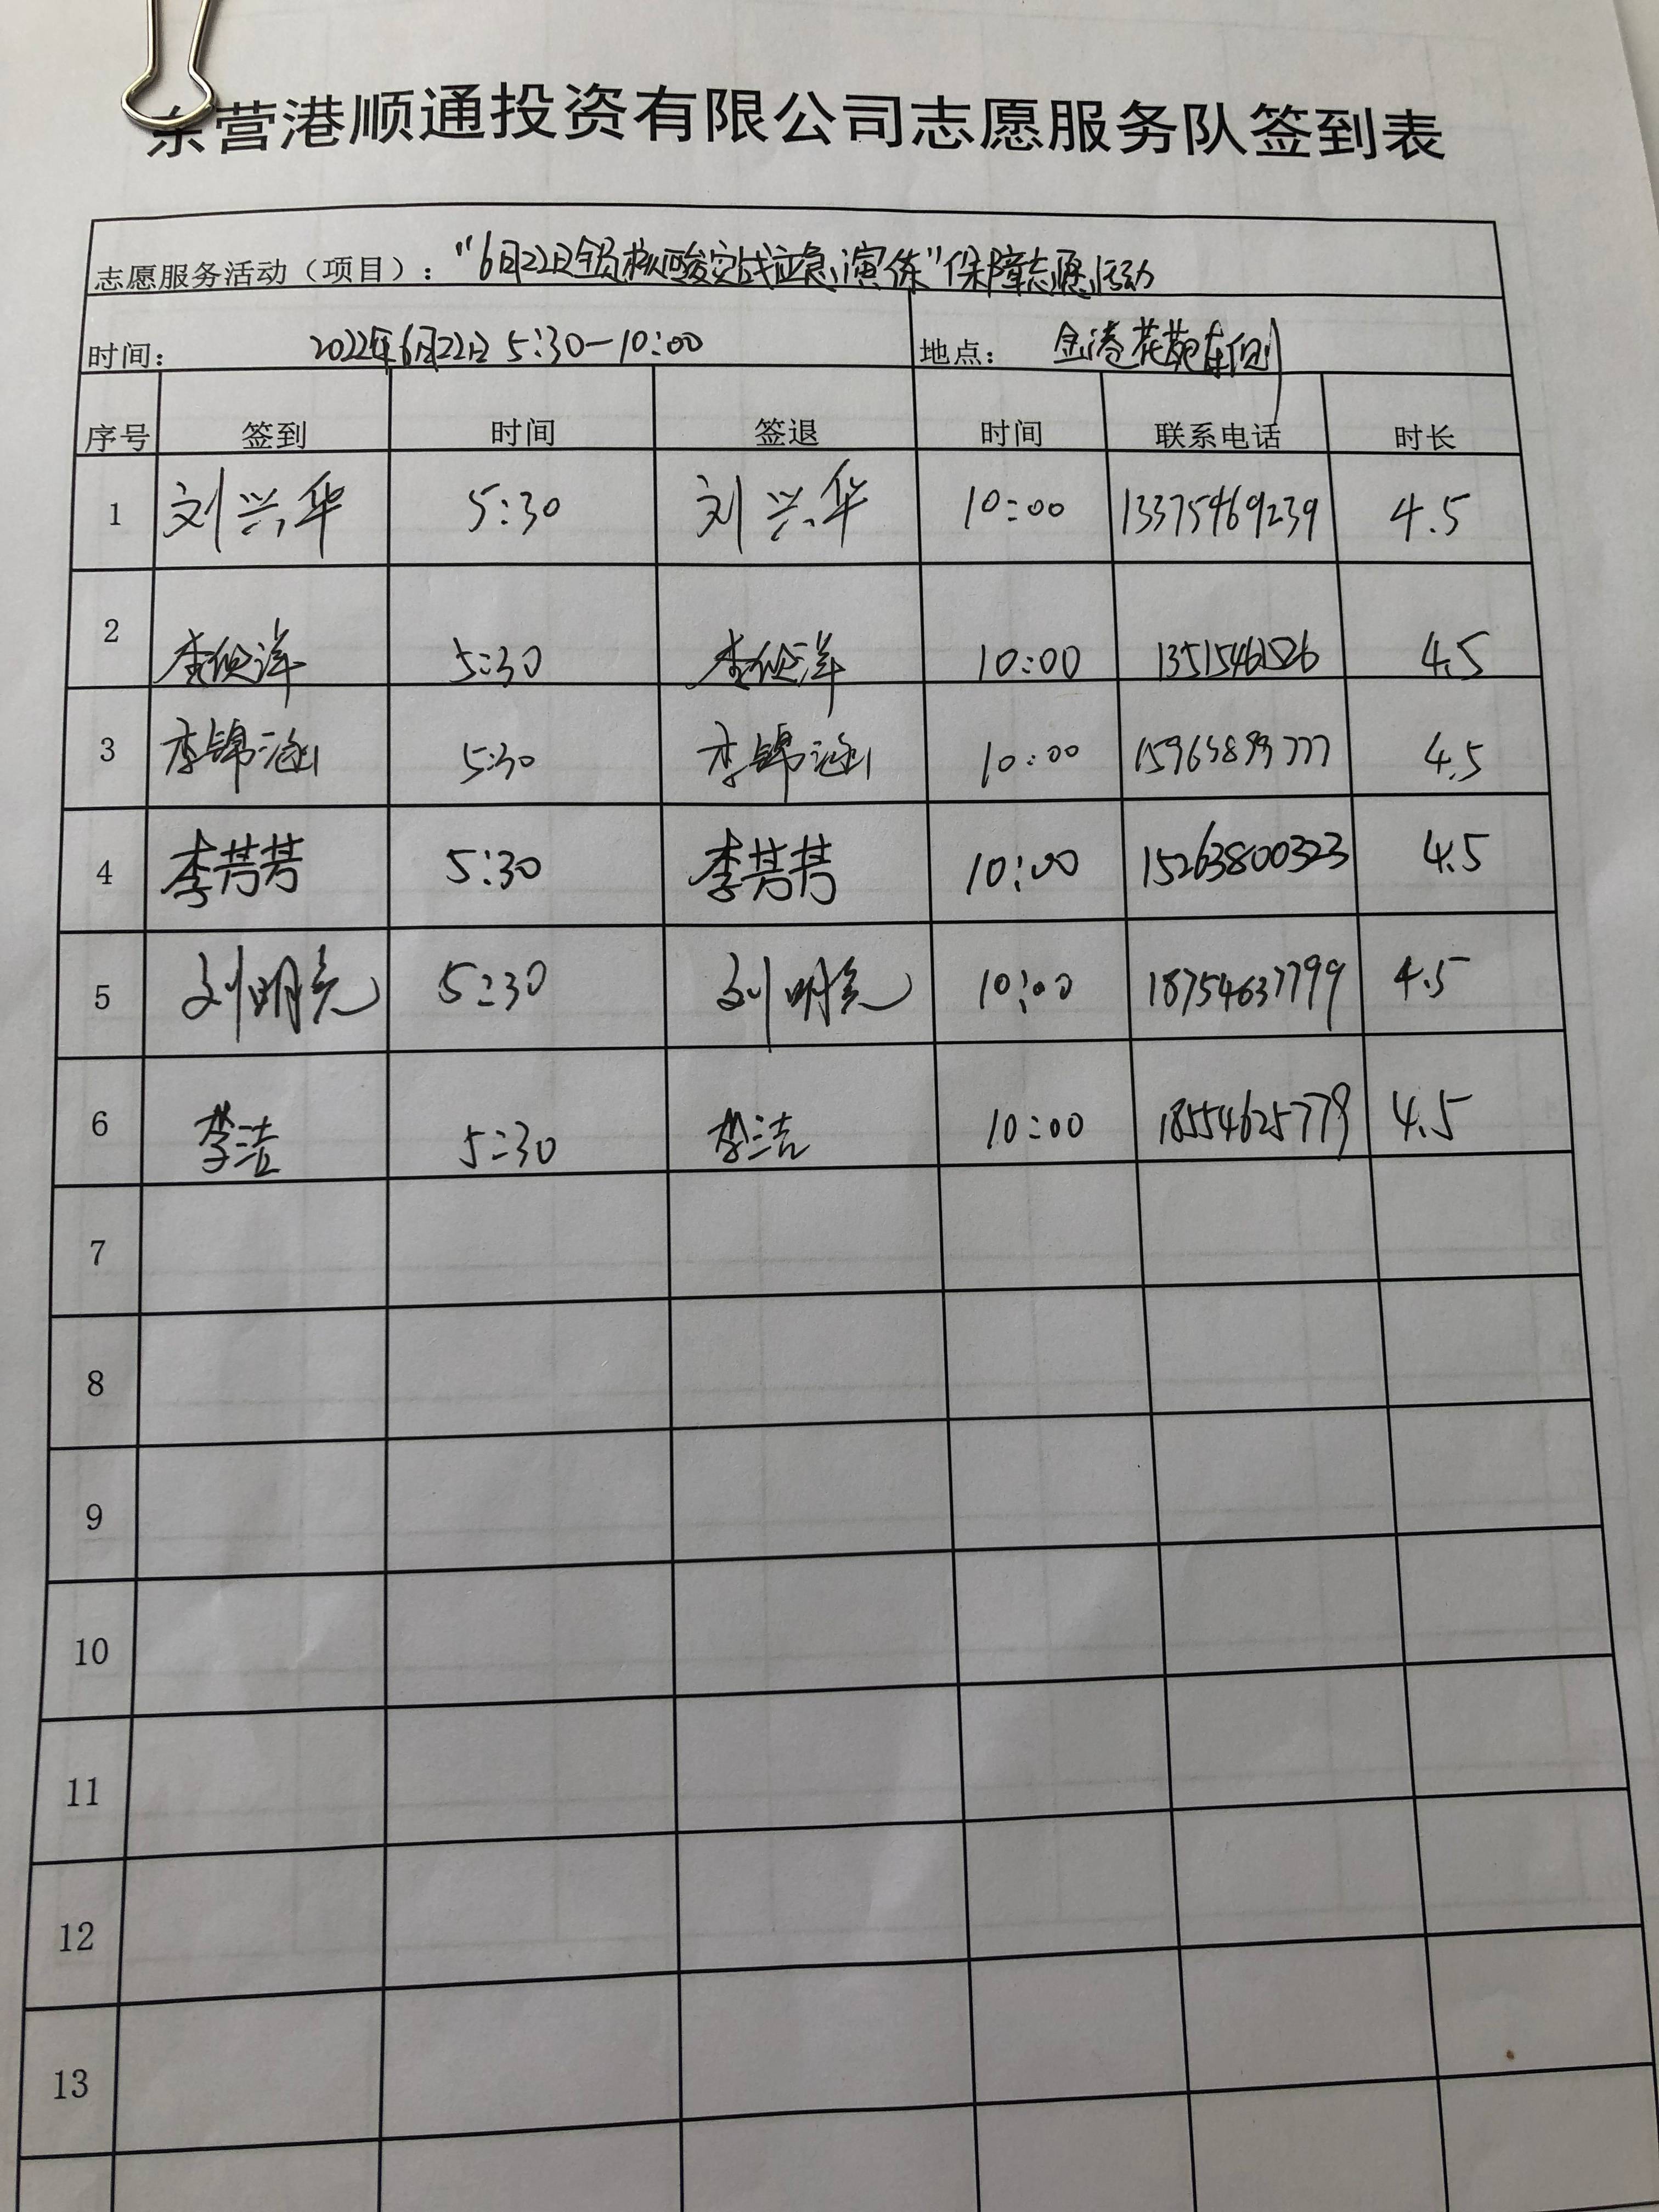 东营港顺通投资有限公司志愿服务队签到表
志愿服务活动（项目）："6月22日全员核酸实战应急演练"保障志愿活动
时间： 2022年6月22日 5:30-10:00 地点： 金港花苑东侧
序号 签到 时间 签退 时间 联系电话 时长
1 刘兴华 5:30 刘兴华 10:00 13375469239 4.5
2 5:30 10:00 4.5
3 李锦涵 5:30 李锦涵 10:00 4.5
4 李芳芳 5:30 李芳芳 10:00 15263800323 4.5
5 刘明亮 5:30 刘明亮 10:00 18754637799 4.5
6 李洁 5:30 李洁 10:00 18554625779 4.5
7
8
9
10
11
12
13